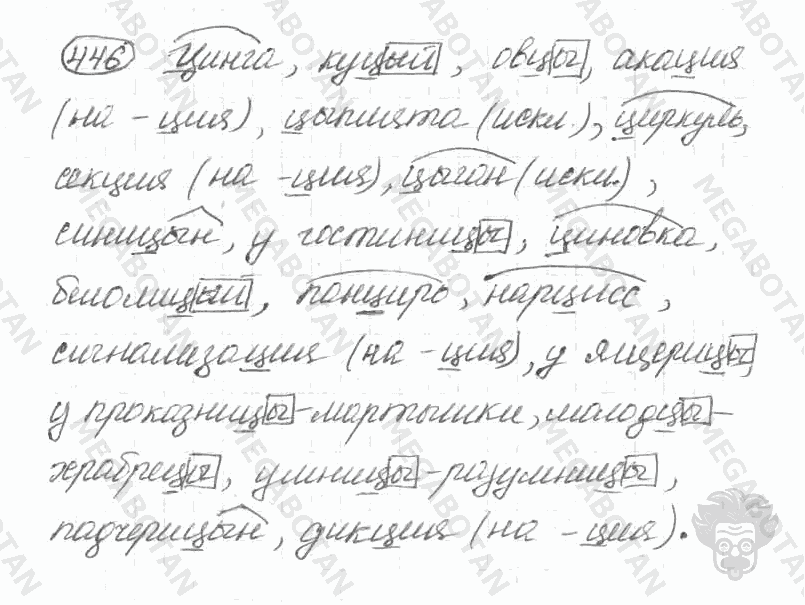 446 Цинга, куцый, овцы, акация
(на -ция), цыплята (искл.), циркуль,
секция (на -ция), цыган (искл.),
синицын, у гостиницы, циновка,
белолицый, панцирь, нарцисс,
сигнализация (на -ция), у ящерицы,
у проказницы-мартышки, молодцы-
храбрецы, умницы-разумницы,
падчерицын, дикция (на -ция).
MEGABOTAN